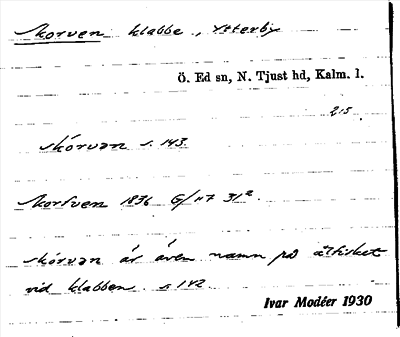 Skorven klabbe, Ytterby
Ö. Ed sn, N. Tjust hd, Kalm. l.
215
skórvən s. 143.
Skorfven 1836 G/117 31²
skórvən är även namn på ålfisket
vid klabben. s 142
Ivar Modéer 1930